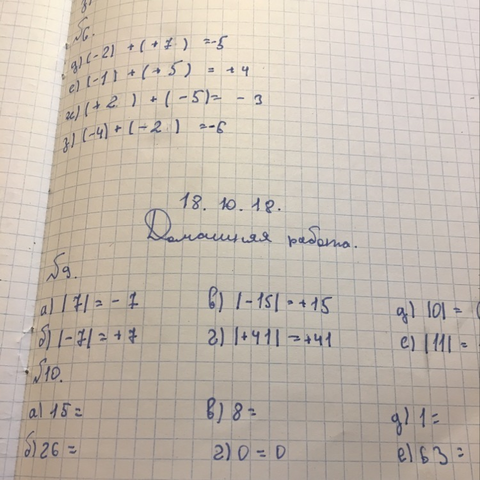 №6.
д) (-2) + (+7) = -5
е) (-1) + (+5) = +4
ж) (+2) + (-5) = -3
з) (-4) + (-2) = -6
18. 10. 18.
Домашняя работа.
№9.
а) |7| = -7 в) |-15| = +15 д) |0| =
б) |-7| = +7 г) |+41| = +41 е) |11| =
№10.
а) 15 = в) 8 = д) 1 =
б) 26 = г) 0 = 0 е) 63 =